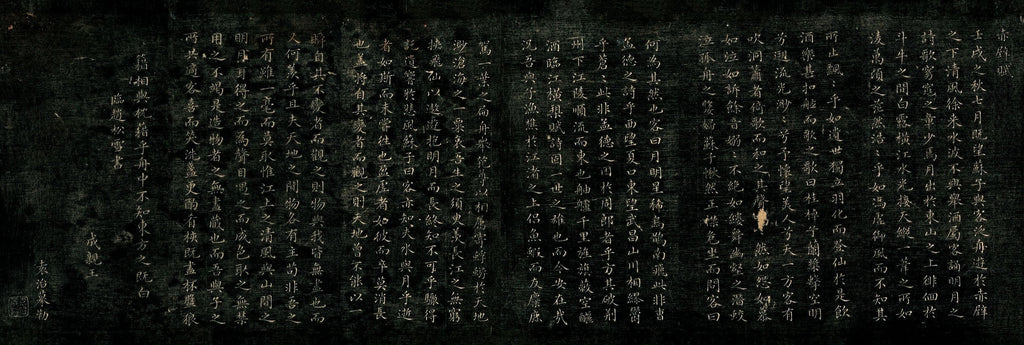 赤壁賦
壬戌之秋七月既望蘇子與客泛舟遊於赤壁
之下清風徐來水波不興舉酒屬客誦明月之
詩歌窈窕之章少焉月出於東山之上徘徊於
斗牛之間白露橫江水光接天縱一葦之所如
凌萬頃之茫然浩浩乎如馮虛御風而不知其
所止飄飄乎如遺世獨立羽化而登仙於是飲
酒樂甚扣舷而歌之歌曰桂棹兮蘭槳擊空明
兮遡流光渺渺兮予懷望美人兮天一方客有
吹洞簫者倚歌而和之其聲然如怨如慕
如泣如訴餘音嫋嫋不絕如縷舞幽壑之潛蛟
泣孤舟之嫠婦蘇子愀然正襟危坐而問客曰
何為其然也客曰月明星稀烏鵲南飛此非曹
孟德之詩乎西望夏口東望武昌山川相繆鬱
乎蒼蒼此非孟德之困於周郎者乎方其破荆
州下江陵順流而東也舳艫千里旌旗蔽空釃
酒臨江橫槊賦詩固一世之雄也而今安在哉
況吾與子漁樵於江渚之上侶魚蝦而友麋鹿
駕一葉之扁舟舉匏尊以相屬寄蜉蝣於天地
渺滄海之一粟哀吾生之須臾羨長江之無窮
挾飛仙以遨遊抱明月而長終知不可乎驟得
託遺響於悲風蘇子曰客亦知夫水與月乎逝
者如斯而未嘗往也盈虛者如彼而卒莫消長
也蓋將自其變者而觀之則天地曾不能以一
瞬自其不變者而觀之則物與我皆無盡也而
又何羨乎且夫天地之間物各有主苟非吾之
所有雖一毫而莫取惟江上之清風與山間之
明月耳得之而為聲目遇之而成色取之無禁
用之不竭是造物者之無盡藏也而吾與子之
所共適客喜而笑洗盞更酌肴核既盡杯盤狼
籍相與枕藉乎舟中不知東方之既白
臨趙松雪書
成親王
袁治摹勒